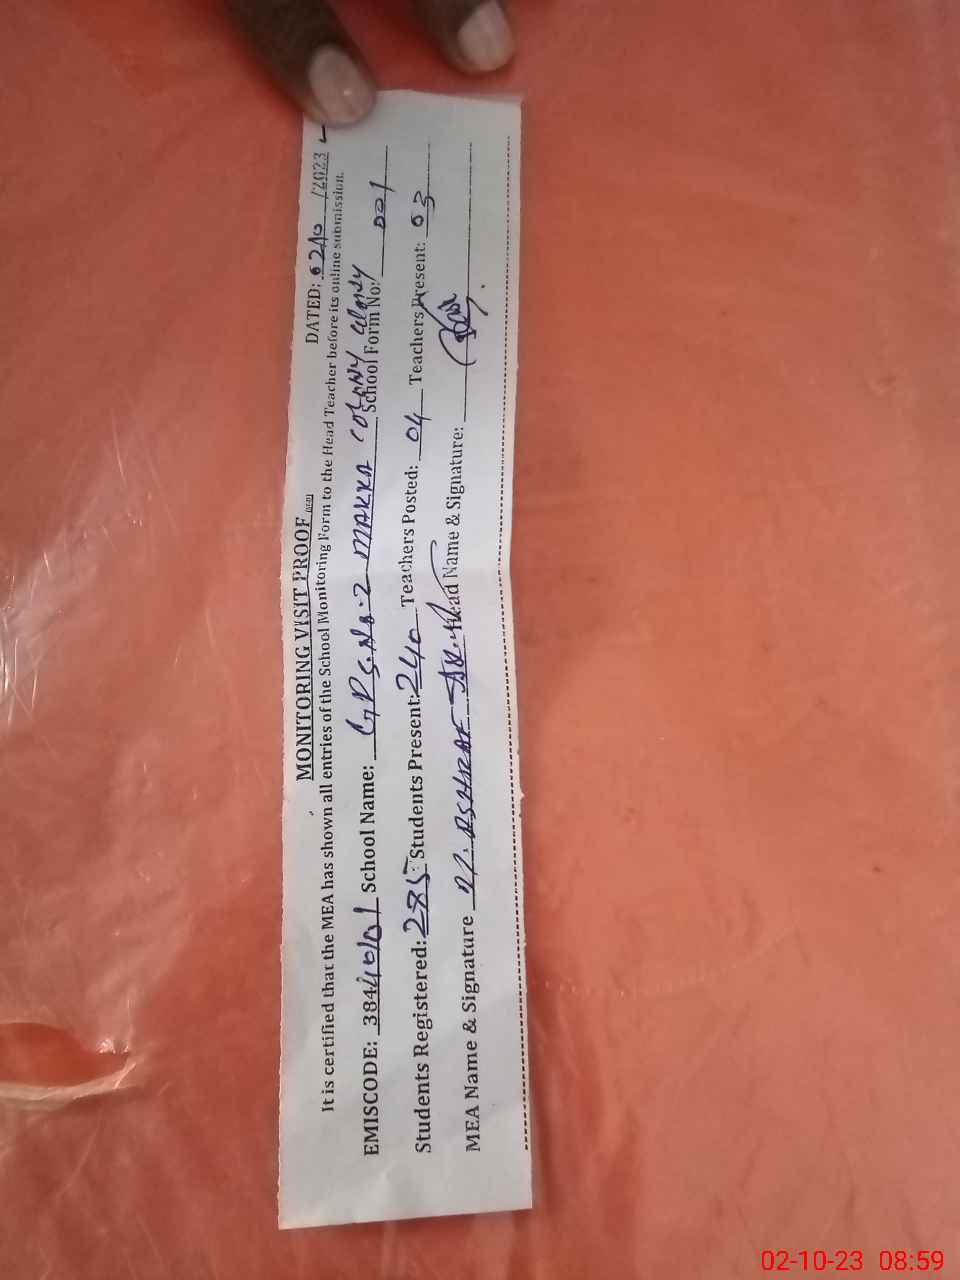 MONITORING VISIT PROOF DATED: 02/10/2023
It is certified that the MEA has shown all entries of the School Monitoring Form to the Head Teacher before its online submission.
EMISCODE: 38410101 School Name: GPS. No. 2 MAKKA COLONY School Form No: 001
Students Registered: 285 Students Present: 240 Teachers Posted: 04 Teachers Present: 03
MEA Name & Signature ASHRAF Head Name & Signature:
02-10-23 08:59